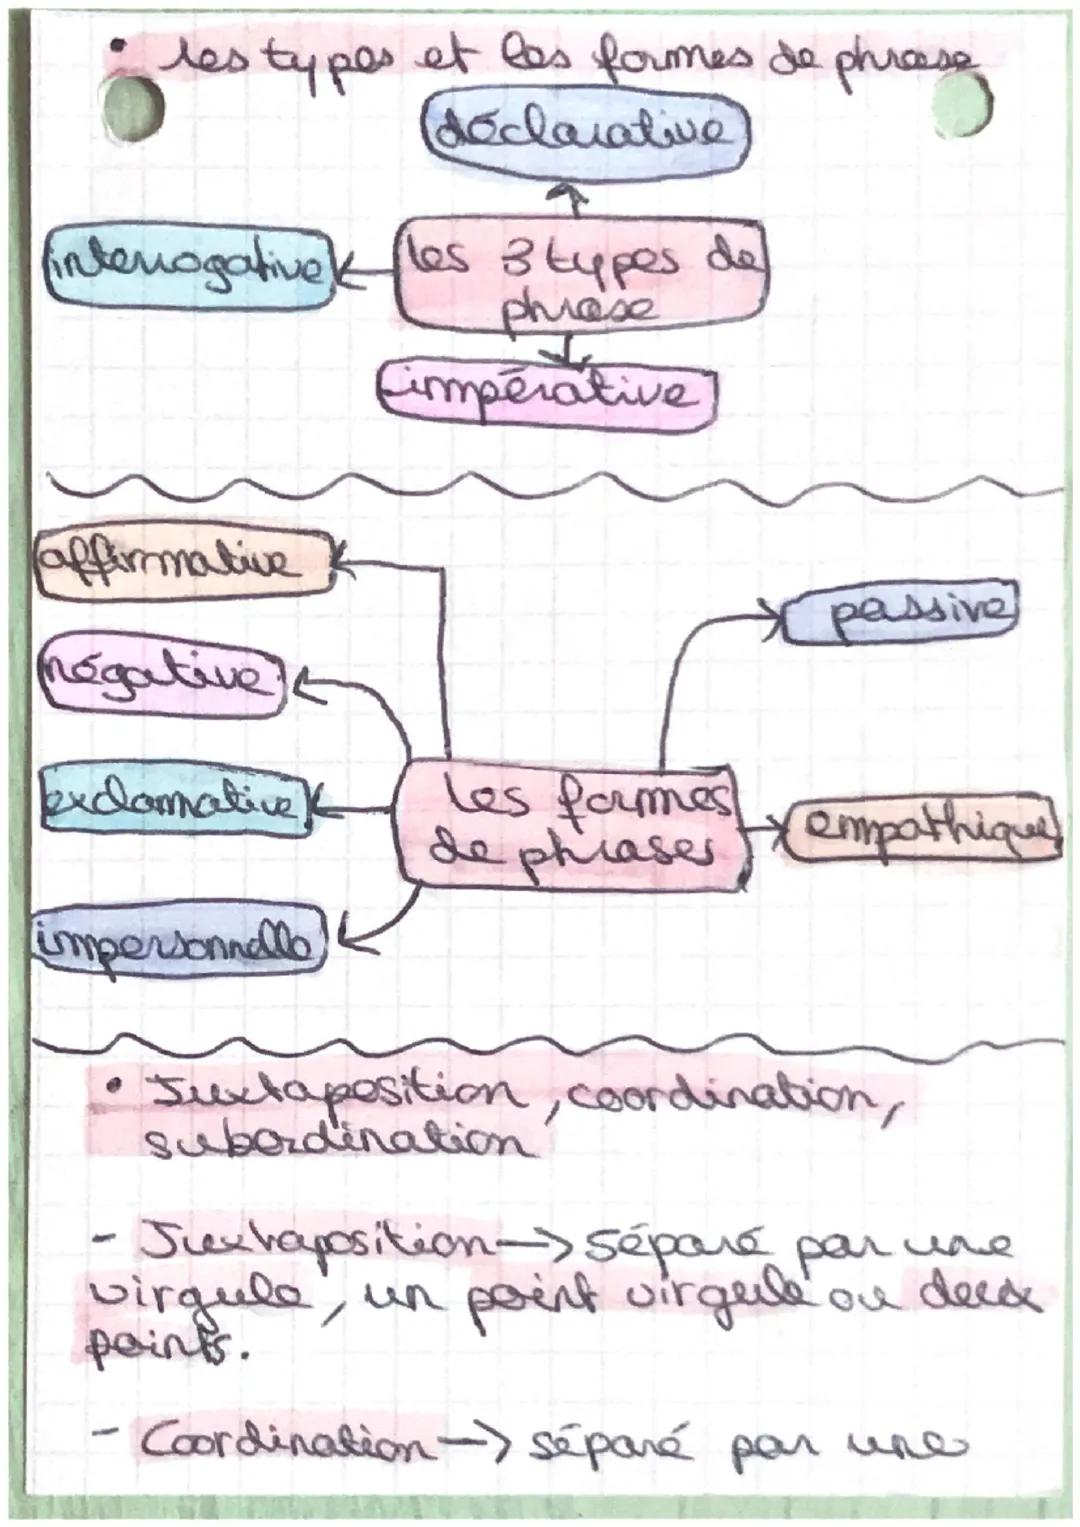 • les types et les formes de phrase
déclarative
interrogative
les 3 types de
phrase
impérative
affirmative
passive
négative
exclamative
les formes
de phrases
empathique
impersonnelle
• Juxtaposition, coordination,
subordination
- Juxtaposition -> séparé par une
virgule, un point virgule ou deux
points.
- Coordination -> séparé par une